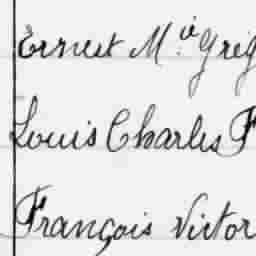 Ernest M.ie Grég
Louis Charles F
François Victor